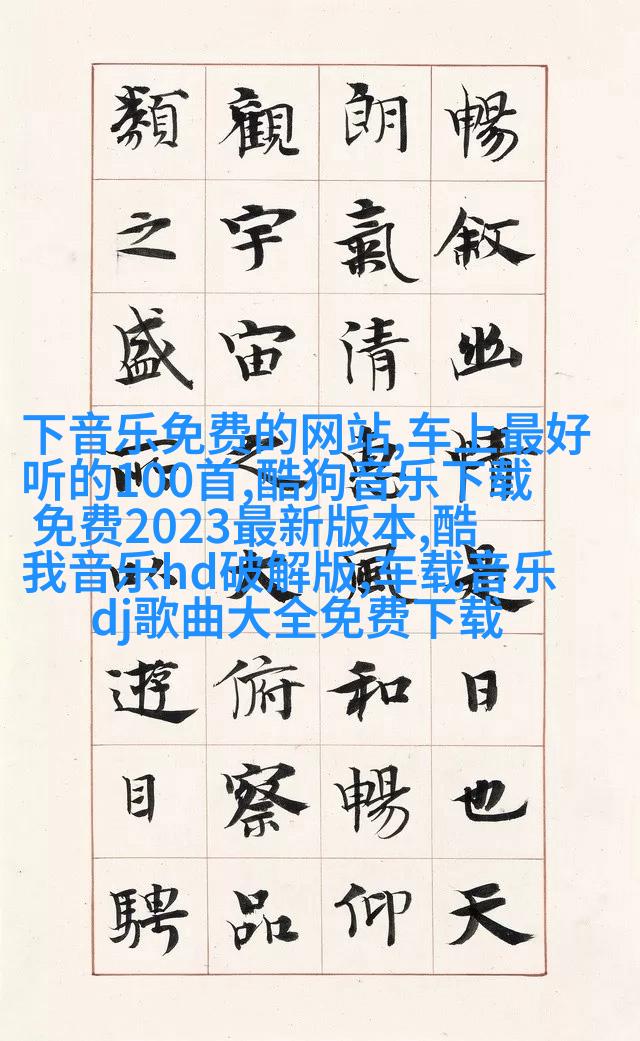 暢敘幽情是日也天
朗氣清惠風和暢仰
觀宇宙之大俯察品
類之盛所以遊目騁
下音乐免费的网站,车上最好
听的100首,酷狗音乐下载
免费2023最新版本,酷
我音乐hd破解版,车载音乐
dj歌曲大全免费下载